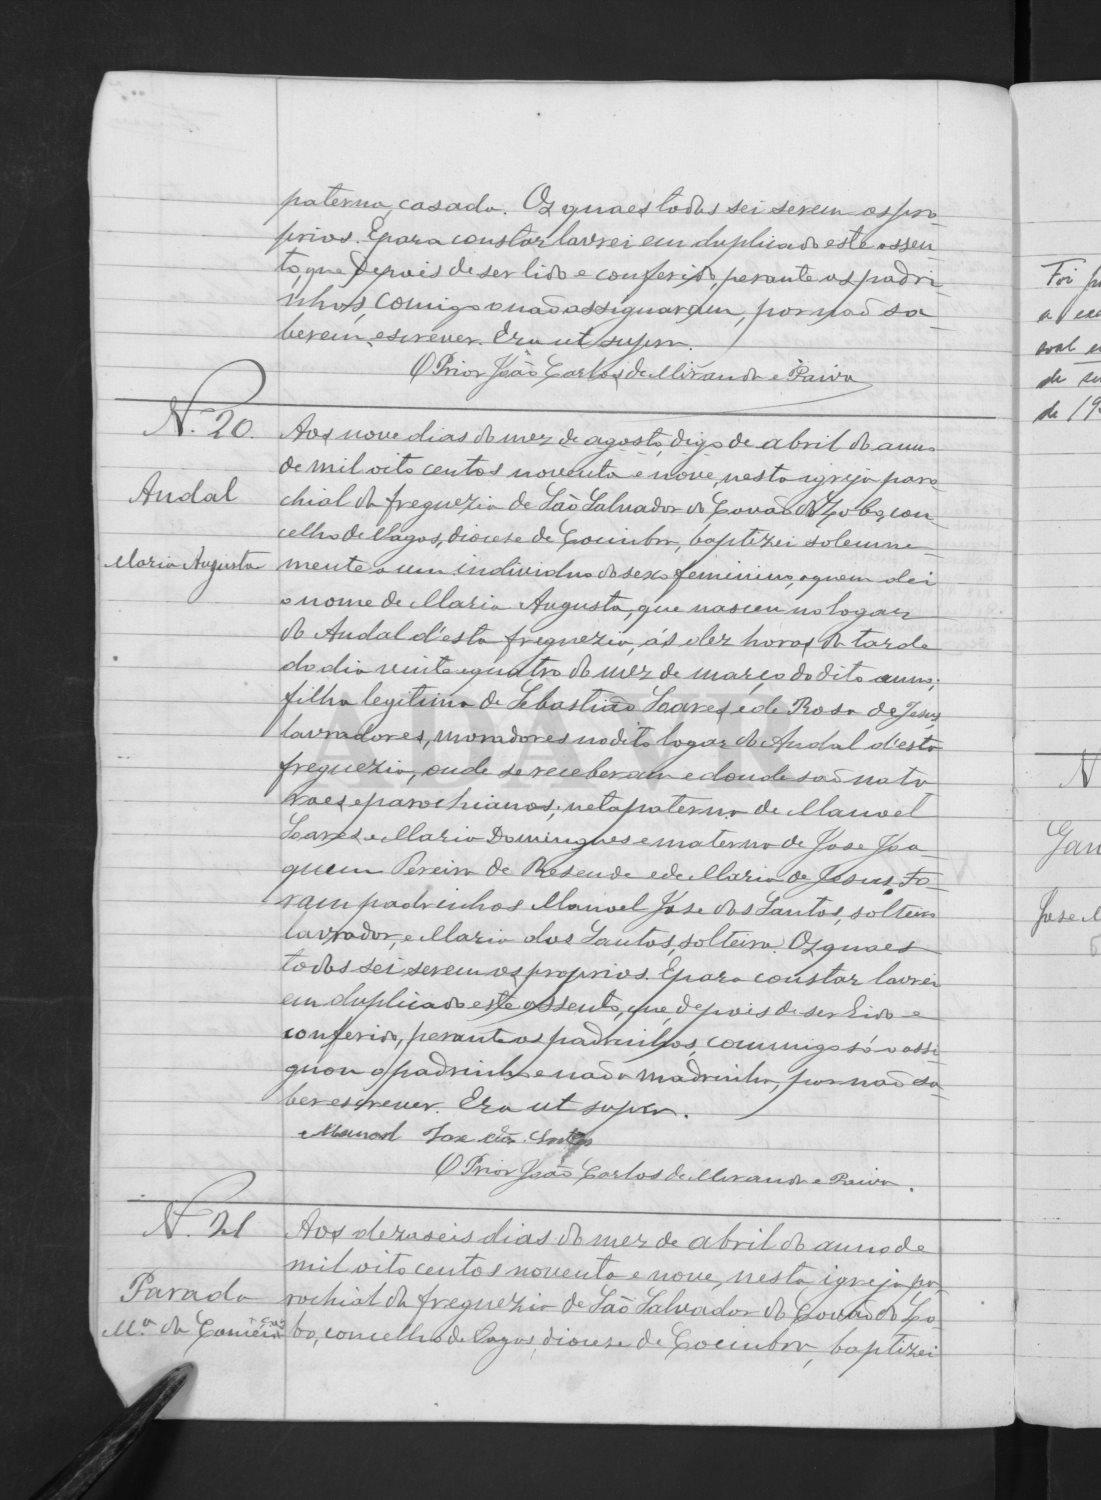 paterna, casada. Os quaes todos sei serem os pro
prios. E para constar lavrei em duplicado este assen-
to, que depois de ser lido e conferido, perante os padri-
nhos, comigo o não assignaram, por não sa-
berem escrever. Era ut supra.
O Prior João Carlos de Miranda e Paiva
N.º 20.
Andal
Maria Augusta
Aos nove dias do mez de agosto, digo de abril do anno
de mil oito centos noventa e nove, nesta igreja paro
chial da freguezia de São Salvador do Covão do Lobo, con-
celho de Vagos, diocese de Coimbra, baptizei solemne-
mente a um individuo do sexo feminino, a quem dei
o nome de Maria Augusta, que nasceu no logar
do Andal d'esta freguezia, ás dez horas da tarde
do dia vinte e quatro do mez de março do dito anno;
filha legitima de Sebastião Loares e de Rosa de Jesus,
lavradores, moradores no dito logar do Andal d'esta
freguezia, onde se receberam e donde são natu
raes e parochianos; neta paterna de Manoel
Loares e Maria Domingues e materna de Jose Joa-
quem Pereira de Resende e de Maria de Jesus. Fo-
ram padrinhos Manoel Jose dos Santos, solteiro
lavrador, e Maria dos Santos, solteira. Os quaes
todos sei serem os proprios. E para constar lavrei
em duplicado este assento, que, depois de ser lido e
conferido, perante os padrinhos, commigo só o assi-
gnou o padrinho e não a madrinha, por não sa-
ber escrever. Era ut supra.
Manoel Jose dos Santos
O Prior João Carlos de Miranda e Paiva.
N.º 21
Parada
M.ª da Conceição
Aos dezaseis dias do mez de abril do anno de
mil oito centos noventa e nove, nesta igreja pa
rochial da freguezia de São Salvador do Covão do Lo-
bo, concelho de Vagos, diocese de Coimbra, baptizei
ADAVR
Foi
a
de
de 19
N
Gan
Jose M